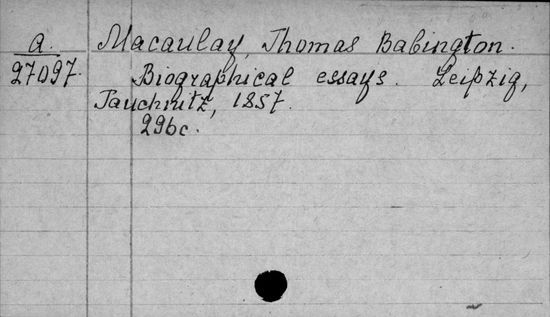 a. Macaulay, Thomas Babington.
27097. Biographical essays. Leipzig,
Tauchnitz, 1857.
296c.